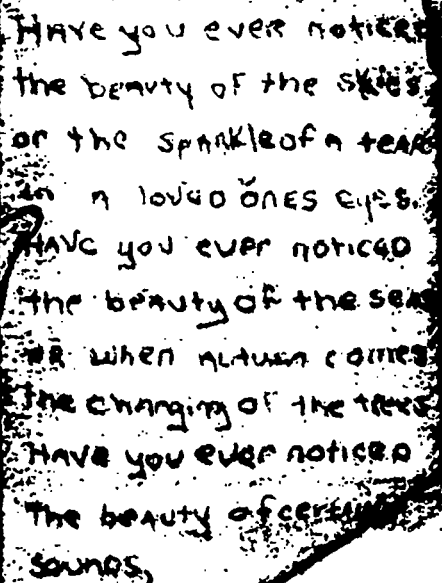 Have you ever noticed
the beauty of the skies
or the sparkle of a tear
in a loved ones eyes.
Have you ever noticed
the beauty of the seas
or when autumn comes
the changing of the trees
Have you ever noticed
The beauty of certain
sounds,